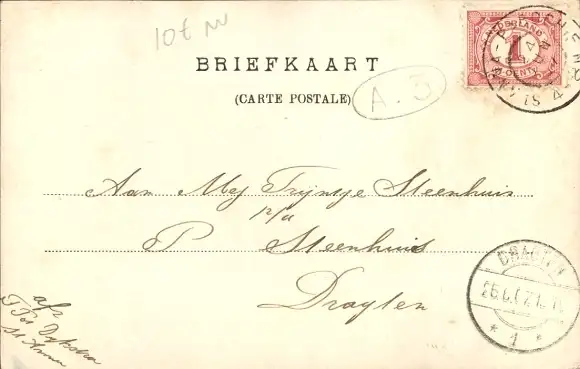 10t
BRIEFKAART
(CARTE POSTALE)
A. 3
NEDERLAND
1
CENT
Aan Mej Trijntje Steenhuis
p/a
P Steenhuis
Dragten
afz
St Anna
1